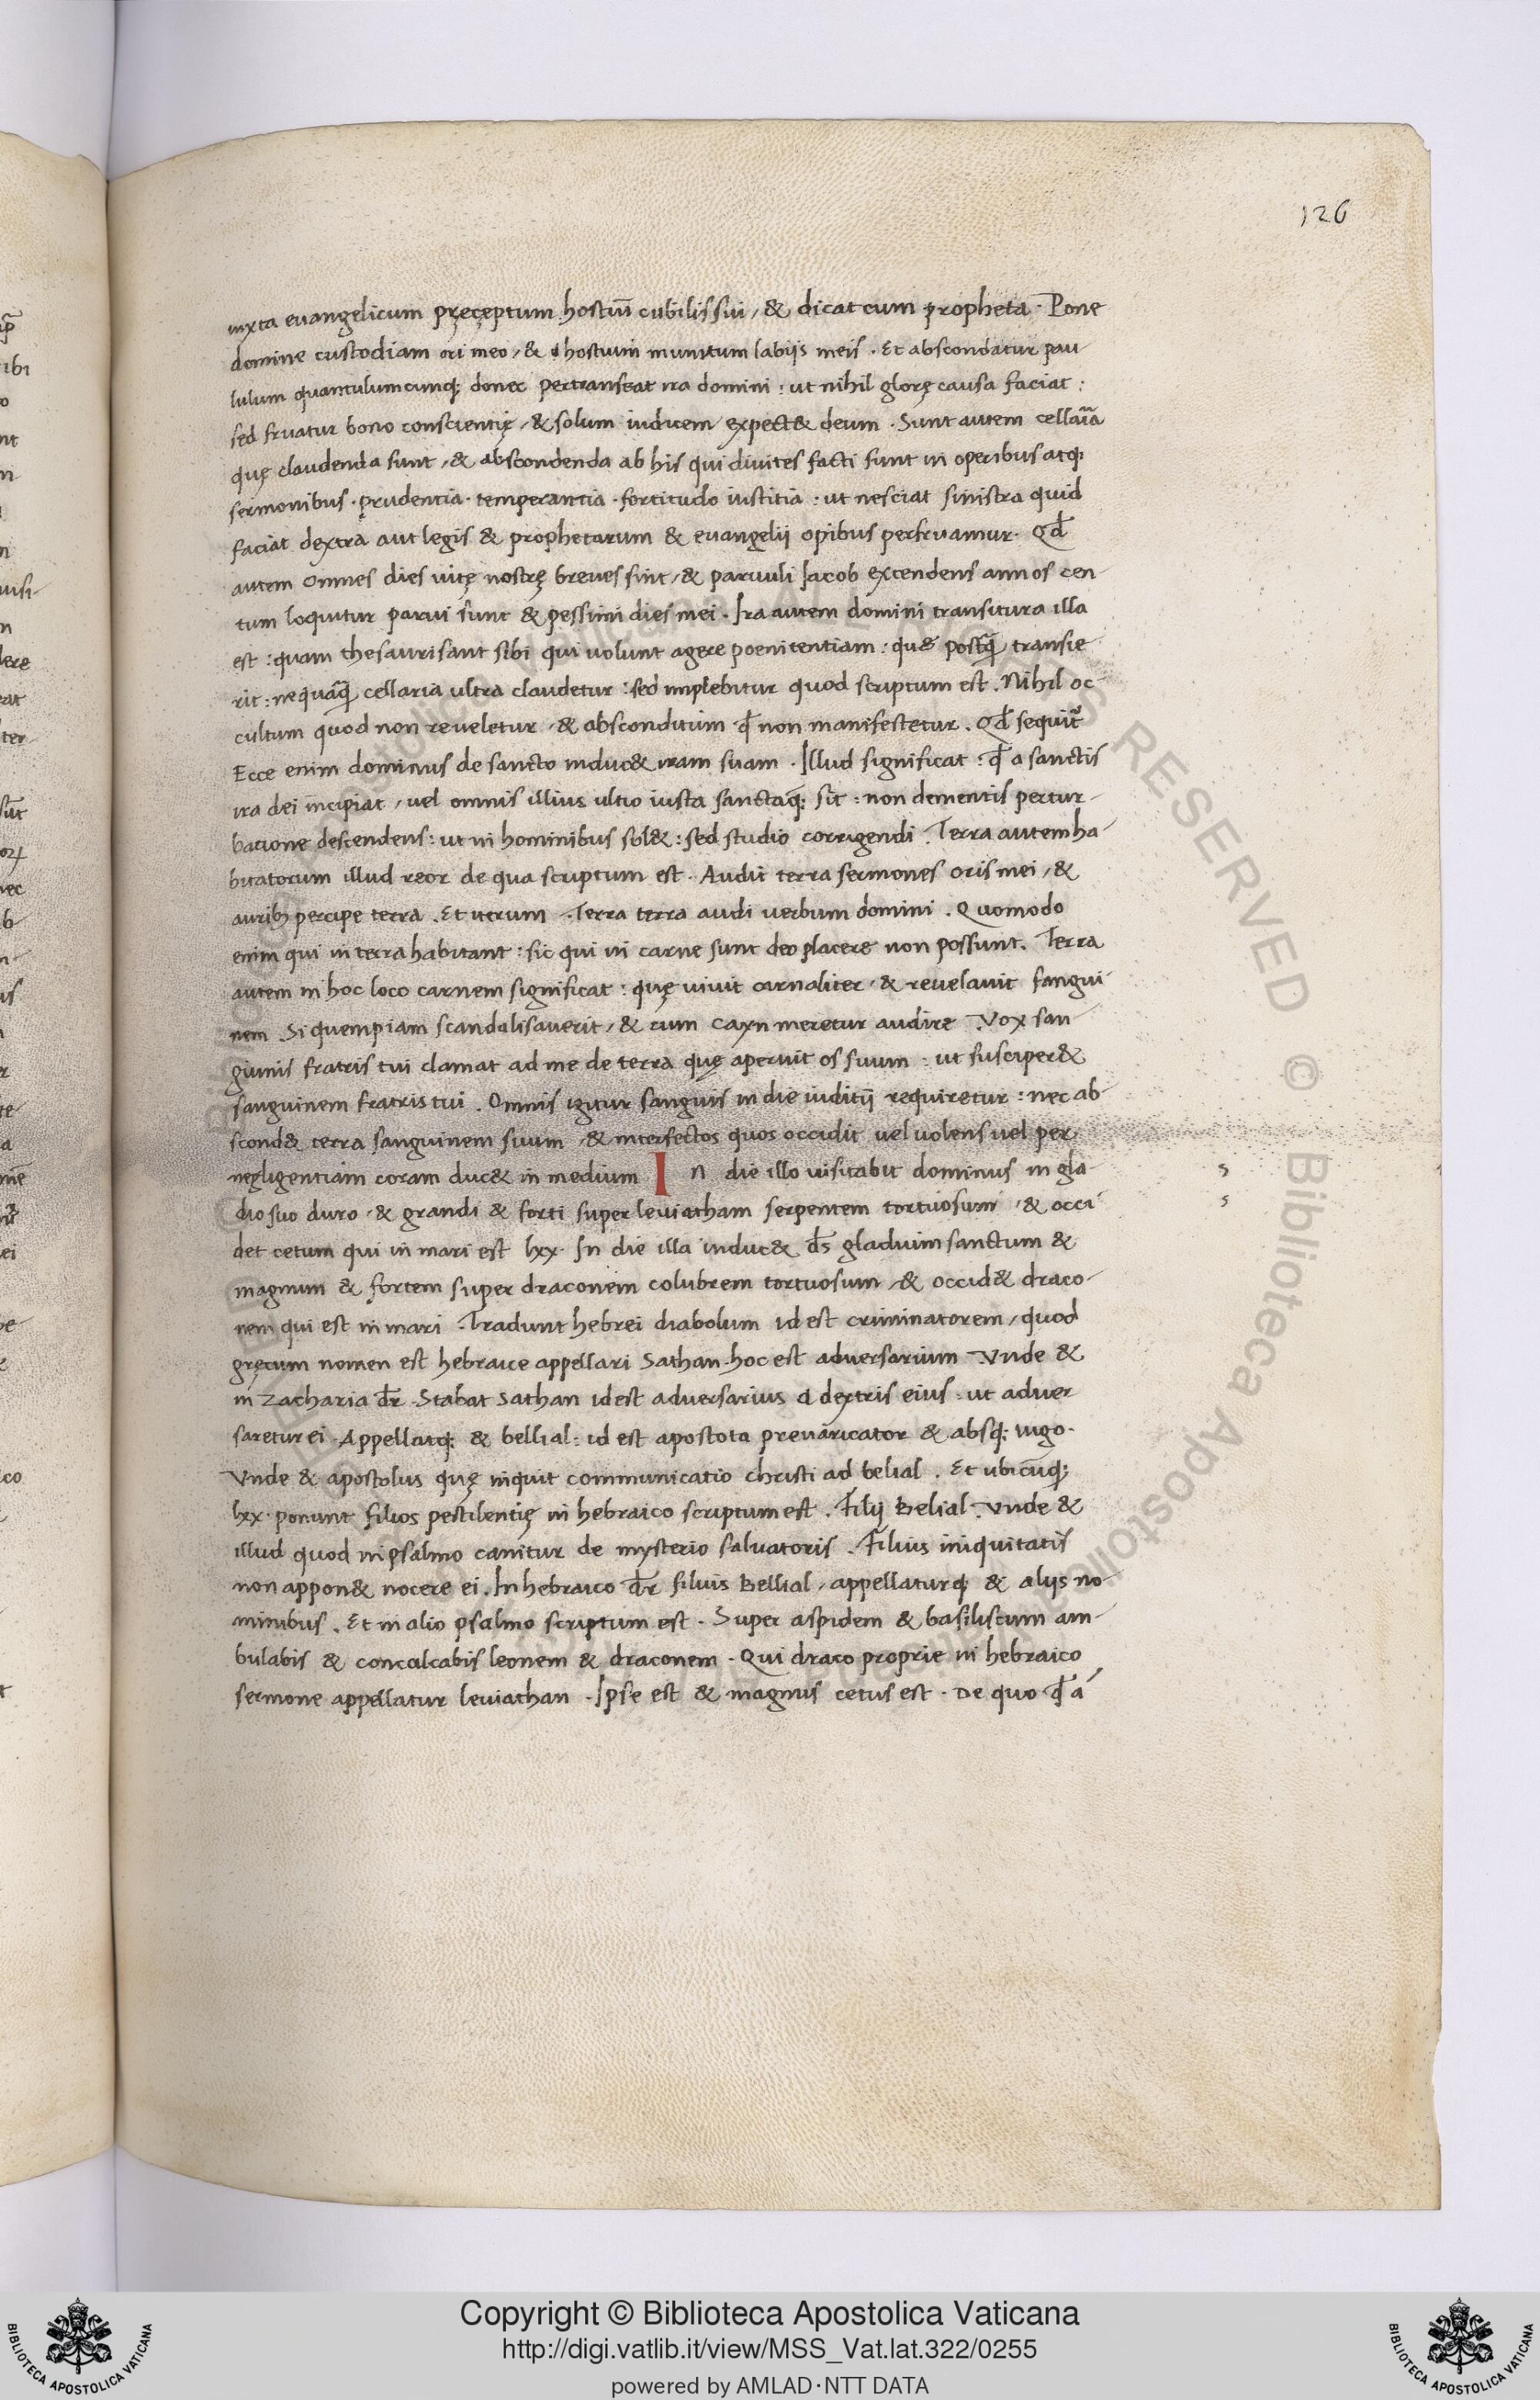 126
iuxta evangelicum pręceptum hostiū cubilis sui, & dicat cum propheta. Pone
domine custodiam ori meo, & hostium munitum labijs meis. Et abscondatur pau-
lulum quantulumcunq; donec pertranseat ira domini: ut nihil glorę causa faciat:
sed fruatur bono conscientię, & solum iudicem expect& deum. Sunt autem cellaria
quę claudenda sunt, & abscondenda ab his qui divites facti sunt in operibus atq;
sermonibus. prudentia. temperantia. fortitudo iustitia: ut nesciat sinistra quid
faciat dextra aut legis & prophetarum & evangelij opibus perfruamur. Qđ
autem omnes dies vitę nostrę breves sint, & parvuli Jacob excendens annos cen-
tum loquitur parvi sunt & pessimi dies mei. Ira autem domini transitura illa
est: quam thesaurisant sibi qui volunt agere poenitentiam: quę postq̄ transie-
rit: nequaq̄ cellaria ultra claudetur: sed implebitur quod scriptum est. Nihil oc-
cultum quod non reveletur, & absconditum qđ non manifestetur. Qđ sequitᷣ
Ecce enim dominus de sancto induc& iram suam. Illud significat: qđ a sanctis
ira dei incipiat, vel omnis illius ultio iusta sanctaq; sit: non dementis pertur-
batione descendens: ut in hominibus sol&: sed studio corrigendi. Terra autem ha-
bitatorum illud reor de qua scriptum est. Audit terra sermones oris mei, &
aurib; percipe terra. Et iterum. Terra terra audi verbum domini. Quomodo
enim qui in terra habitant: sic qui in carne sunt deo placere non possunt. Terra
autem in hoc loco carnem significat: quę vivit carnaliter, & revelavit sangui-
nem Si quempiam scandalisaverit, & cum Cayn meretur audire. Vox san-
guinis fratris tui clamat ad me de terra quę aperuit os suum: ut susciper&
sanguinem fratris tui. Omnis igitur sanguis in die iuditij requiretur: nec ab-
scond& terra sanguinem suum, & interfectos quos occidit vel volens vel per
negligentiam coram duc& in medium In die illo visitabit dominus in gla-
dio suo duro, & grandi & forti super leviatham serpentem tortuosum, & occi-
det cetum qui in mari est lxx. In die illa induc& d̄s gladium sanctum &
magnum & fortem super draconem colubrem tortuosum, & occid& draco-
nem qui est in mari. Tradunt hebrei diabolum id est criminatorem, quod
gręcum nomen est hebraice appellari Sathan. hoc est adversarium. Vnde &
in Zacharia dr̄. Stabat Sathan id est adversarius a dextris eius: ut adver-
saretur ei. Appellatq; & bellial: id est apostota prevaricator & absq; iugo.
Vnde & apostolus quę inquit communicatio christi ad belial. Et ubicūq;
lxx. ponunt filios pestilentię in hebraico scriptum est. Filij Belial. Vnde &
illud quod in psalmo canitur de mysterio salvatoris. Filius iniquitatis
non appon& nocere ei. In hebraico dr̄ filius Bellial, appellaturq; & alijs no-
minibus. Et in alio psalmo scriptum est. Super aspidem & basiliscum am-
bulabis & conculcabis leonem & draconem. Qui draco proprie in hebraico
sermone appellatur leviathan. Ipse est & magnus cetus est. De quo qđ a
Copyright © Biblioteca Apostolica Vaticana
http://digi.vatlib.it/view/MSS_Vat.lat.322/0255
powered by AMLAD·NTT DATA